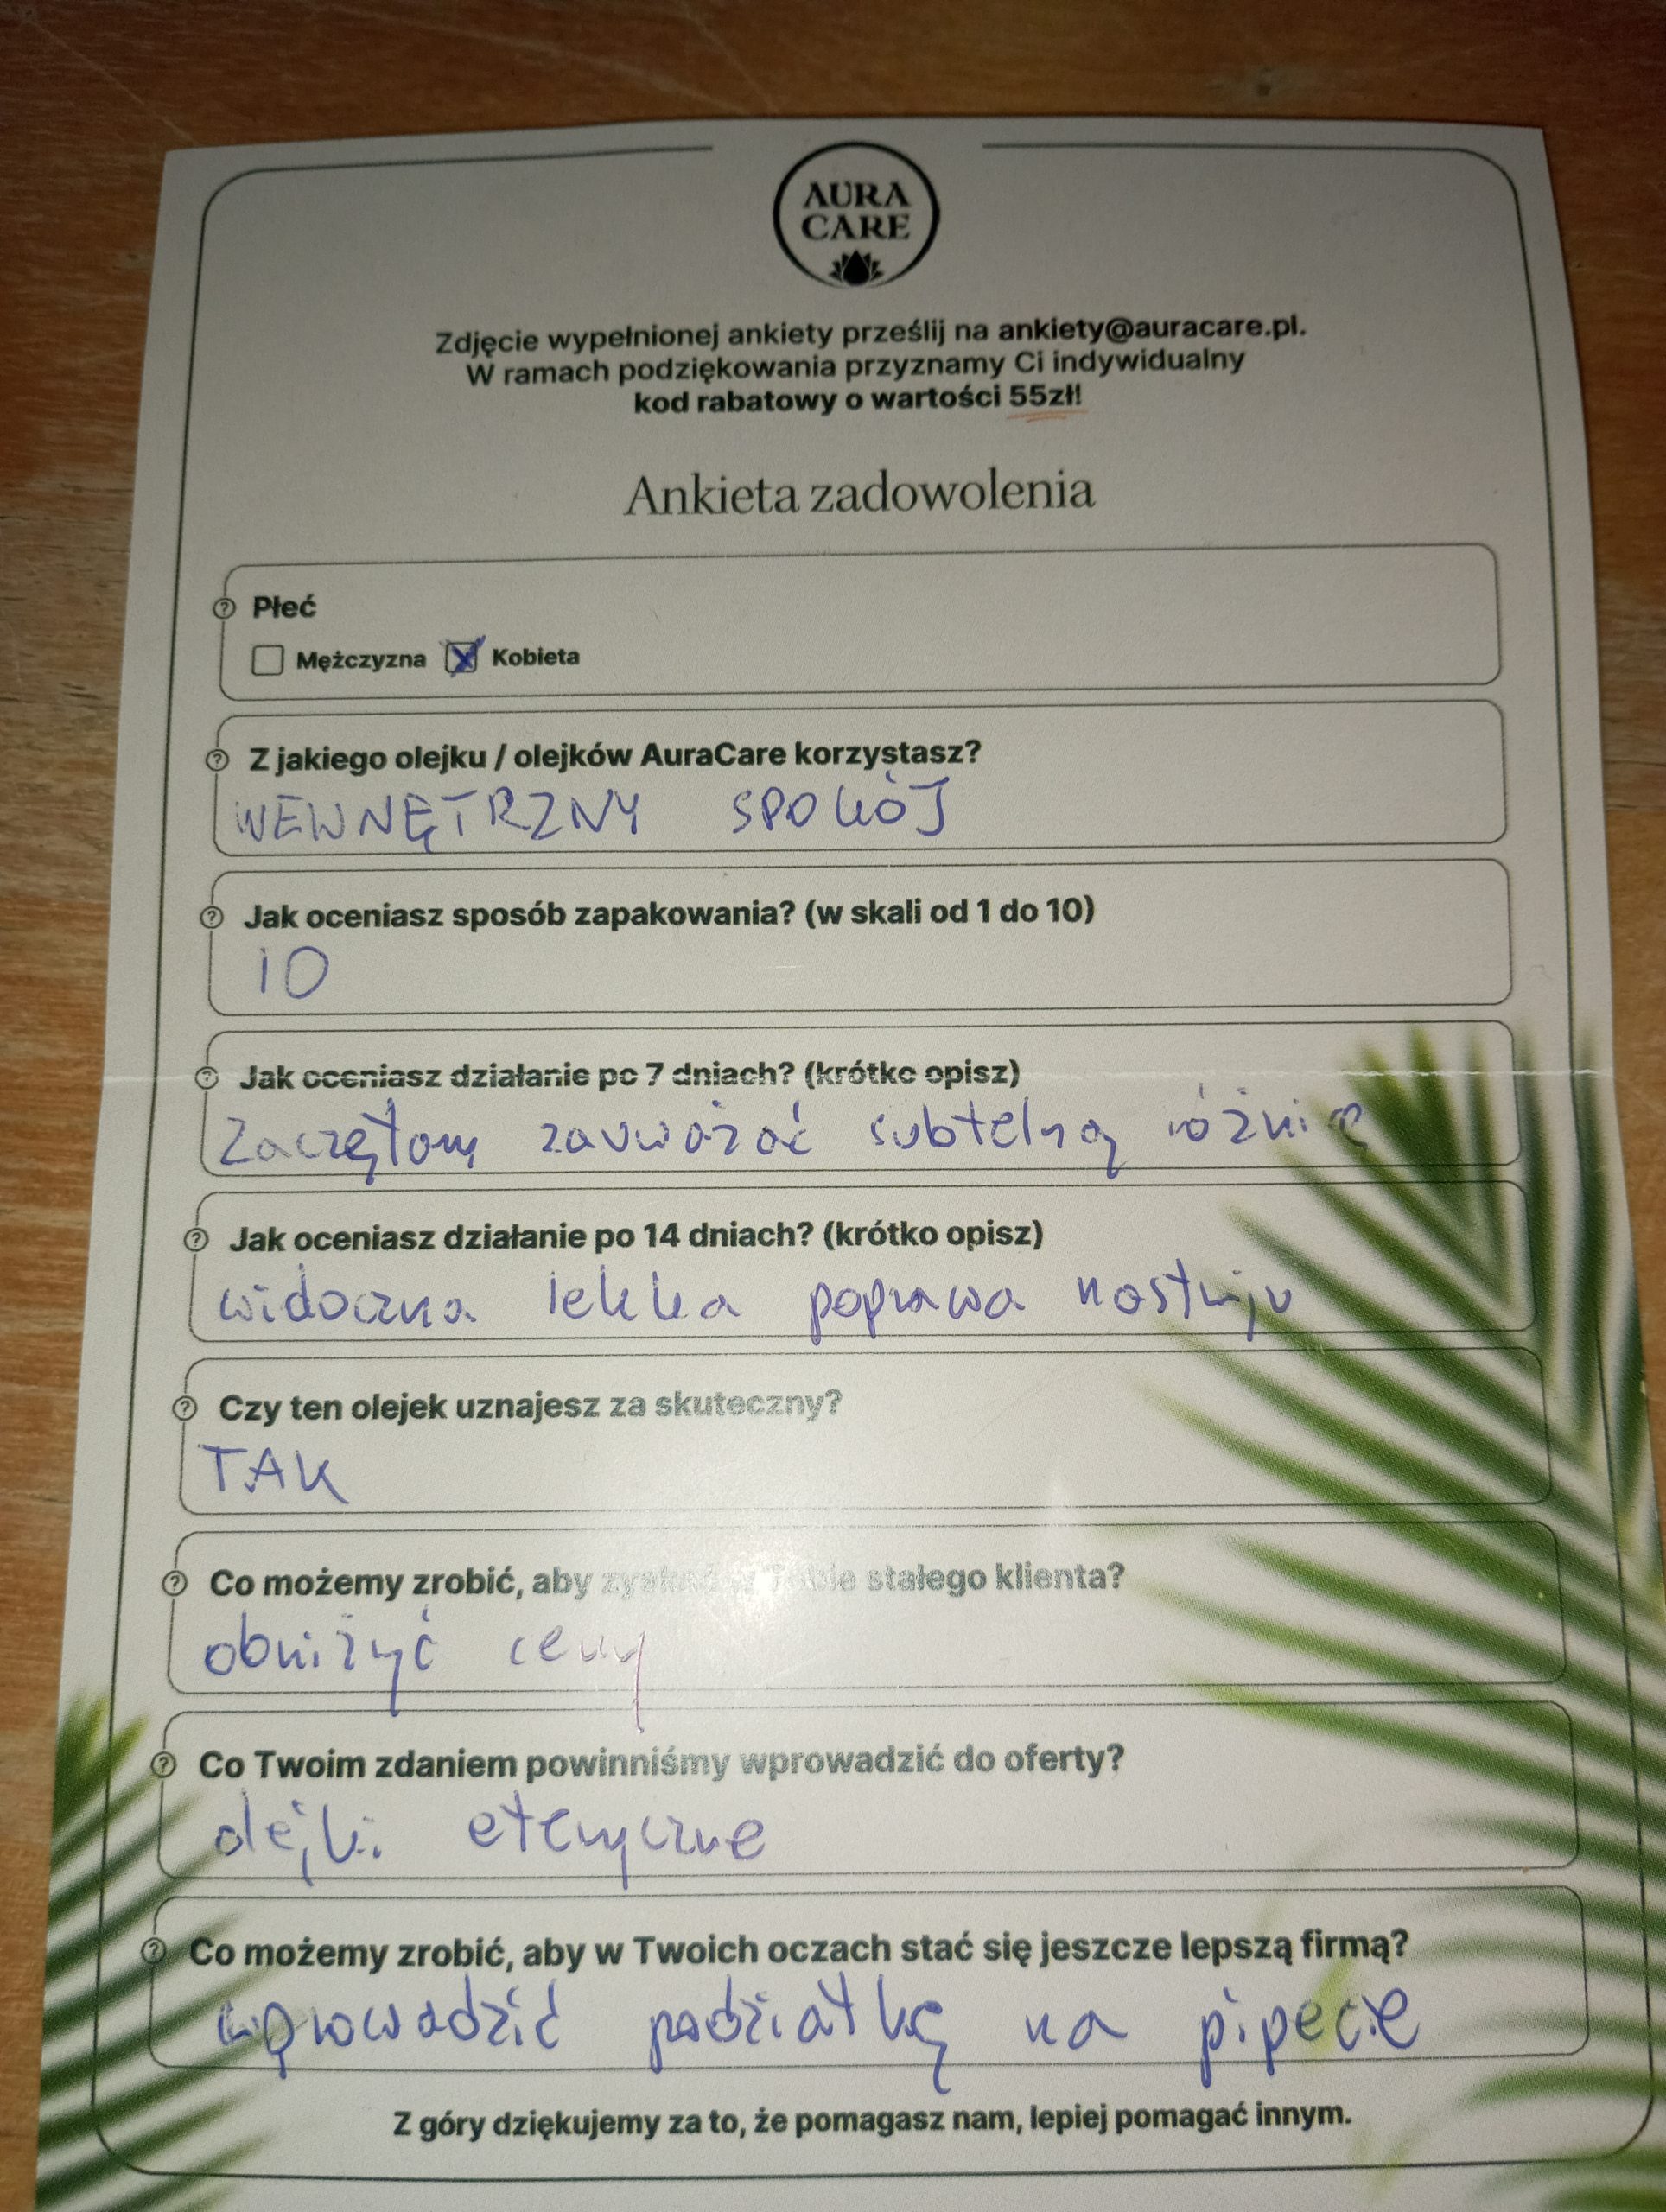 AURA
CARE
Zdjęcie wypełnionej ankiety prześlij na ankiety@auracare.pl.
W ramach podziękowania przyznamy Ci indywidualny
kod rabatowy o wartości 55zł!
Ankieta zadowolenia
Płeć
Mężczyzna Kobieta
Z jakiego olejku / olejków AuraCare korzystasz?
WEWNĘTRZNY SPOKÓJ
Jak oceniasz sposób zapakowania? (w skali od 1 do 10)
10
Jak oceniasz działanie po 7 dniach? (krótko opisz)
Zaczęłam zauważać subtelną
Jak oceniasz działanie po 14 dniach? (krótko opisz)
widoczna lekka poprawa nastroju
Czy ten olejek uznajesz za skuteczny?
TAK
Co możemy zrobić, aby zyskać w Tobie stałego klienta?
obniżyć ceny
Co Twoim zdaniem powinniśmy wprowadzić do oferty?
olejki eteryczne
Co możemy zrobić, aby w Twoich oczach stać się jeszcze lepszą firmą?
wprowadzić podziałkę na pipecie
Z góry dziękujemy za to, że pomagasz nam, lepiej pomagać innym.